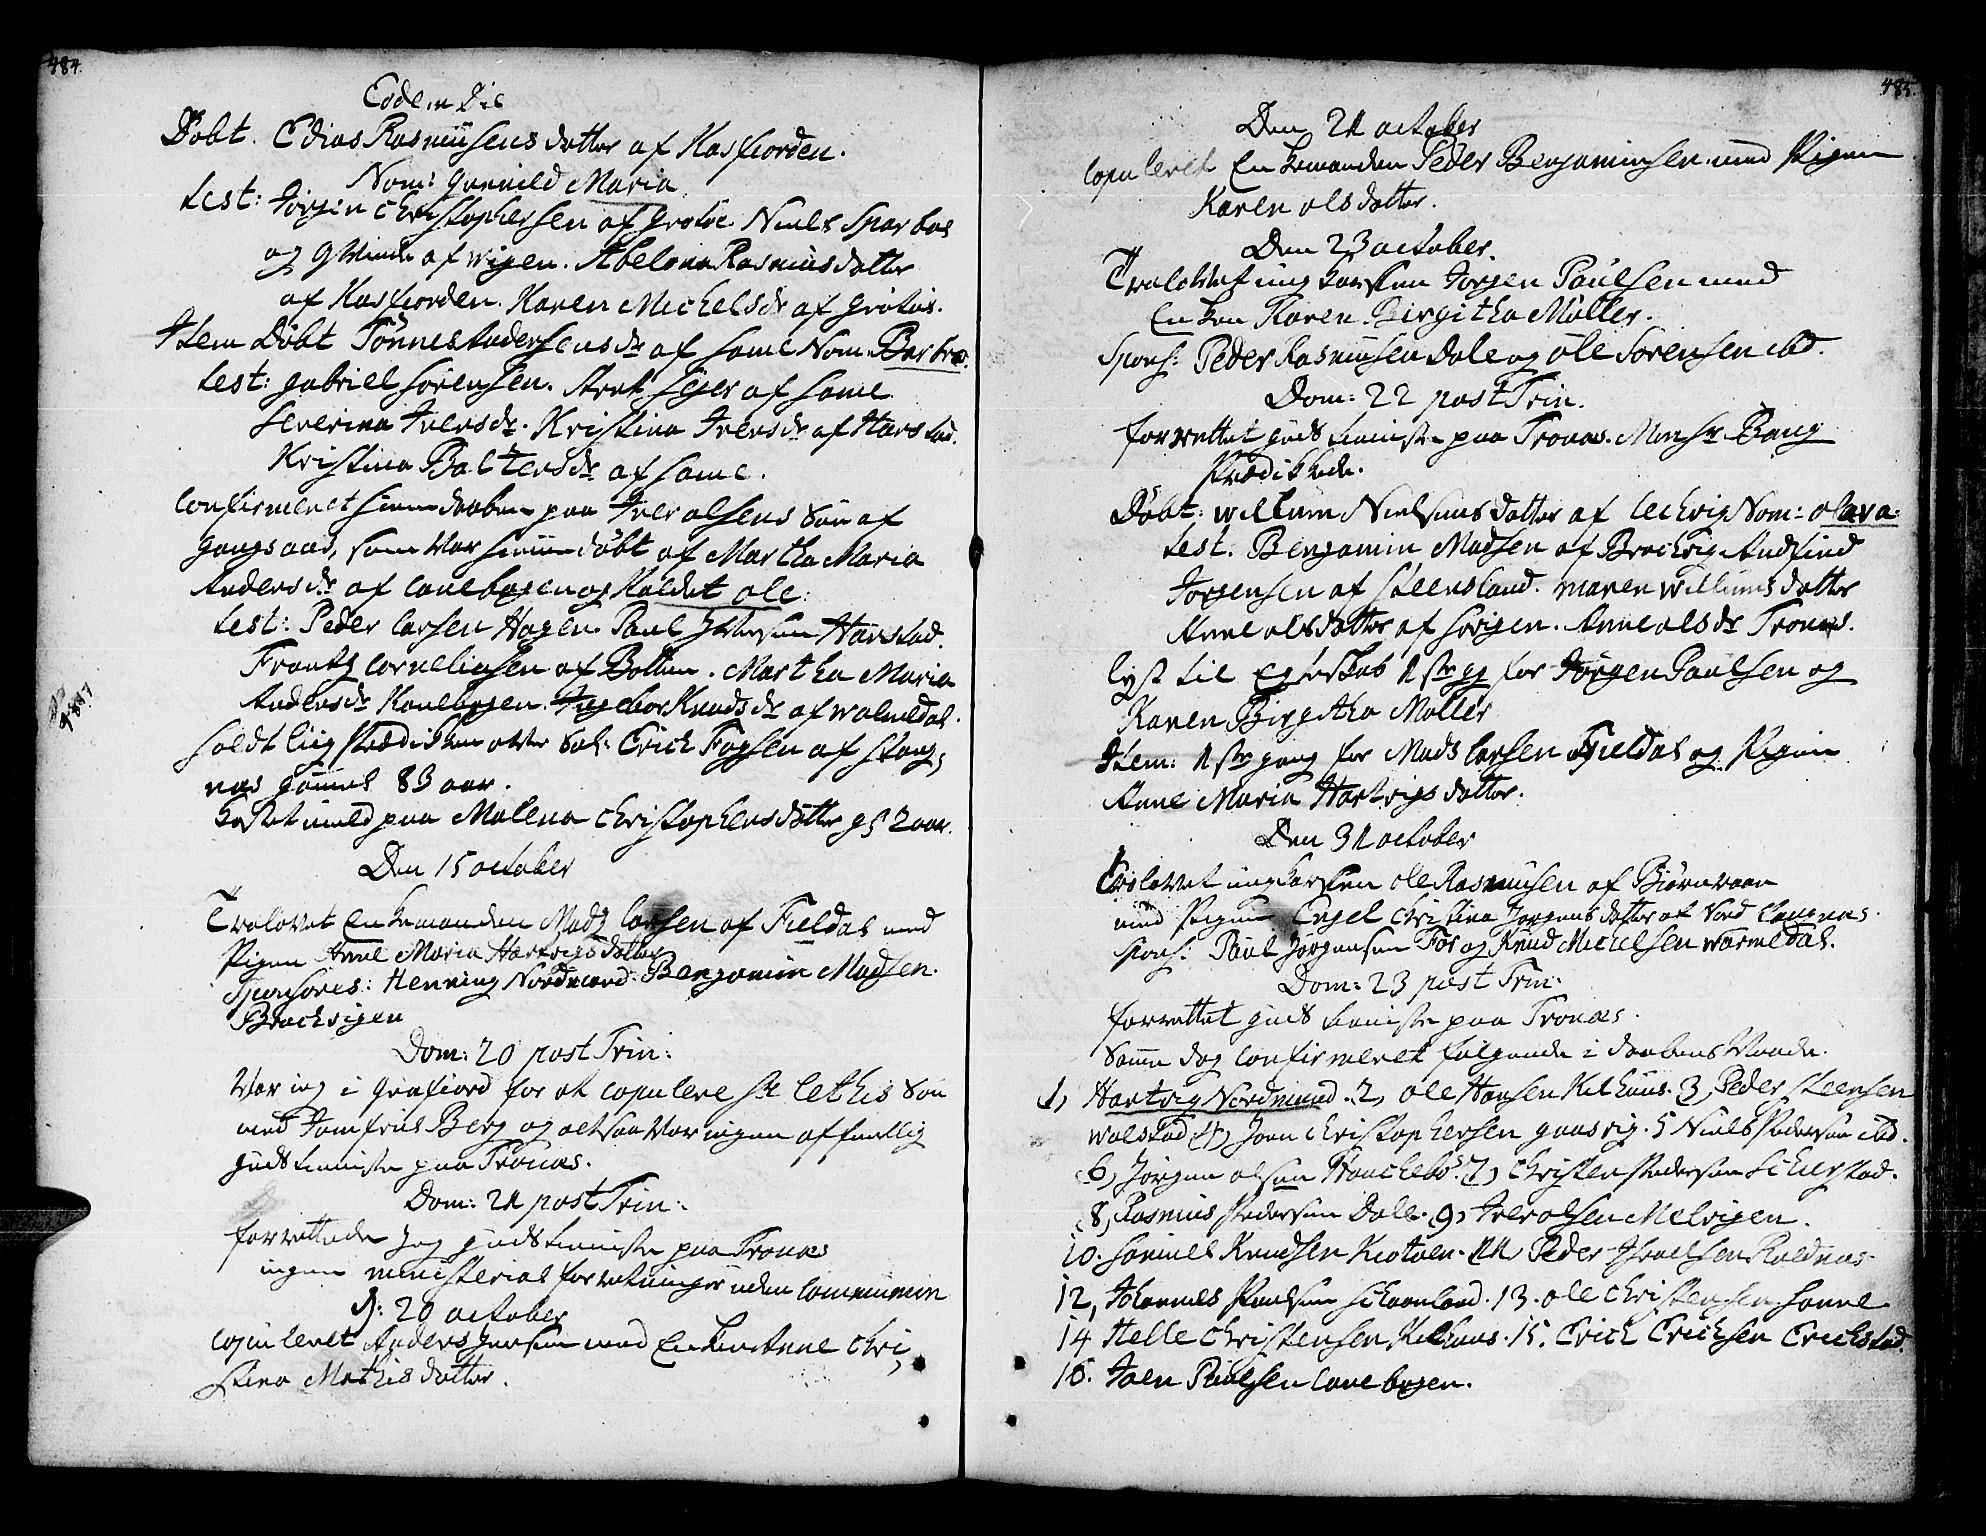 484.
Eodem Die
Döbt. Edias Rasmüsens datter af Kasfiorden.
Nom: gunnild Maria
test: Jörgen Christophersen af Grotöe. Niels Sparboe
og qvinde af wigen. Abelona Rasmusdatter
af Kasfiorden. Karen Michelsdr af grötöe.
Item Döbt Tönnes Andersens dr af same Nom: Barbra.
test: gabriel sörensen. Arent sejer af same.
Severina Iversdr. Kristina Iversdr af Harstad.
Kristina Baltzersdr af same.
Confirmeret hiemmedaaben paa Iver olsens Sön af
gangsaas, som var hiemmedöbt af Martha Maria
Andersdr af lanebogen og kaldet ole:
test: Peder larsen Hagen. Paul Iversen Harstad.
Frantz Corneliusen af Botten. Martha Maria
Andersdr Kanebogen. Ingebor Knudsdr af wolmedal.
holdt liigprædicken over Sal: Erich Fogsen af stang,
nes gamel 83 aar.
kastet muld paa Malena Christophersdatter g 52 aar.
Den 15 october
Trolovet Enkemanden Mads larsen af Fieldal med
Pigen Anne Maria Hartvigsdatter
Sponsores: Henning Nordmand. Benjamin Madsen.
Brochvigen
Dom: 20 post Trin:
Var ieg i grafiord for at copulere Hr lethis Sön
med Jomfrue Berg og altsaa var ingen offentlig
gudstieniste paa Tronæs.
Dom: 21 post Trin:
forrettede jeg gudstieniste paa Tronæs
ingen ministerial forretninger uden communion
d: 20 october
copuleret Anders Jensen med Enken Anne Chri,
stina Mathisdatter.
485.
Den 21 october
copuleret Enkemanden Peder Benjaminsen med Pigen
Karen olsdatter.
Den 23 october.
Trolovet ungkarlen Jörgen Paulsen med
Enken Karen Birgitha Möller.
Spons: Peder Rasmüsen Dale og ole Sörensen ibd.
Dom: 22 post Trin.
forrettet gudstieniste paa Tronæs. Monsr Bang
Prædikkede.
Döbt: willum Nielsens datter af lechvig Nom: olava:
test. Benjamin Madsen af Brochvig. Andfind
Jörgensen af steensland. Maren willumsdatter
Anne olsdatter af sörigen. Anne olsdr Tronæs.
lyst til Egteskab 1ste gg for Jörgen Paulsen og
Karen Birgitha Möller
Item: 1ste gang for Mads larsen Fieldal og Pigen
Anne Maria Hartvigsdatter.
Den 31 october
Trolovet ungkarlen ole Rasmusen af Biörnraaen
med Pigen Engel Christina Jörgensdatter af Nord langnæs.
spons: Paul Jörgensen Før og Knud Michelsen warmedal.
Dom: 23 post Trin:
forrettet gudstieniste paa Tronæs.
Same dag confirmeret fölgende i daabens Naade.
1, Hartvig Nordmand. 2, ole Hansen Kilhuus. 3, Peder steensen
wolstad 4, Joen Christophersen gaasvig. 5 Niels Pedersen ibd.
6, Jörgen olsen Stenchebö. 7, Christen Pedersen schierstad.
8, Rasmus Pedersen Dale. 9, Iver olsen Melvigen.
10. Samuel Knudsen Kiötaen. 11, Peder Israelsen Roldnæs
12, Johannes Paulsen schaanland. 13. ole Christensen sanne
14 Helle Christensen Kilhuus. 15. Erich Erichsen Erichstad.
16. Joen Paulsen lanebogen.